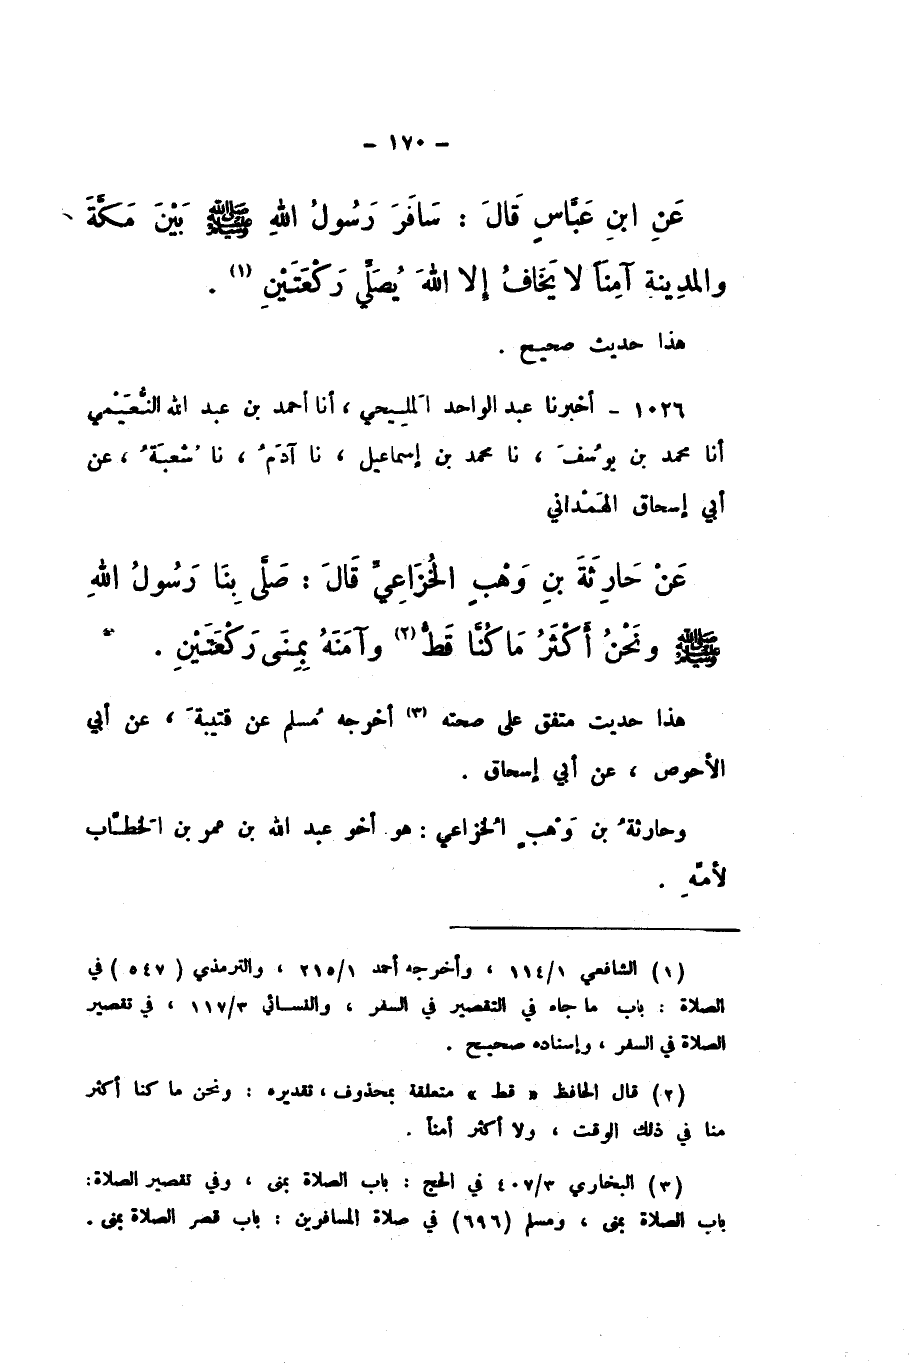 - ١٧٠ -
عَنِ ابنِ عَبَّاسٍ قَالَ : سَافَرَ رَسُولُ اللهِ ﷺ بَيْنَ مَكَّةَ
والمَدِينةِ آمِنَاً لا يَخَافُ إلا اللهَ يُصَلِّي رَكْعَتَيْنِ (١) .
هذا حديث صحيح .
١٠٢٦ - أخبرنا عبد الواحد المَليحي ، أنا أحمد بن عبد الله النُّعَيْمي
أنا محمد بن يوسُفَ ، نا محمد بن إسماعيل ، نا آدَمُ ، نا شُعبَةُ ، عن
أبي إسحاق الهَمْداني
عَنْ حَارِثَةَ بنِ وَهْبٍ الخُزَاعِيِّ قَالَ : صَلَّى بِنَا رَسُولُ اللهِ
ﷺ ونَحْنُ أَكْثَرُ مَا كُنَّا قَطُّ (٢) وآمَنَهُ بِمِنَى رَكْعَتَيْنِ .
هذا حديث متفق على صحته (٣) أخرجه مُسلم عن قتيبةَ ، عن أبي
الأحوص ، عن أبي إسحاق .
وحارثةُ بن وَهْبٍ الخُزاعي : هو أخو عبد الله بن عمر بن الخَطَّاب
لأمّهِ .
(١) الشافعي ١١٤/١ ، وأخرجه أحمد ٢١٥/١ ، والترمذي ( ٥٤٧ ) في
الصلاة : باب ما جاء في التقصير في السفر ، والنسائي ١١٧/٣ ، في تقصير
الصلاة في السفر ، وإسناده صحيح .
(٢) قال الحافظ « قط » متعلقة بمحذوف ، تقديره : ونحن ما كنا أكثر
منا في ذلك الوقت ، ولا أكثر أمناً .
(٣) البخاري ٤٠٧/٣ في الحج : باب الصلاة بمنى ، وفي تقصير الصلاة :
باب الصلاة بمنى ، ومسلم (٦٩٦) في صلاة المسافرين : باب قصر الصلاة بمنى .